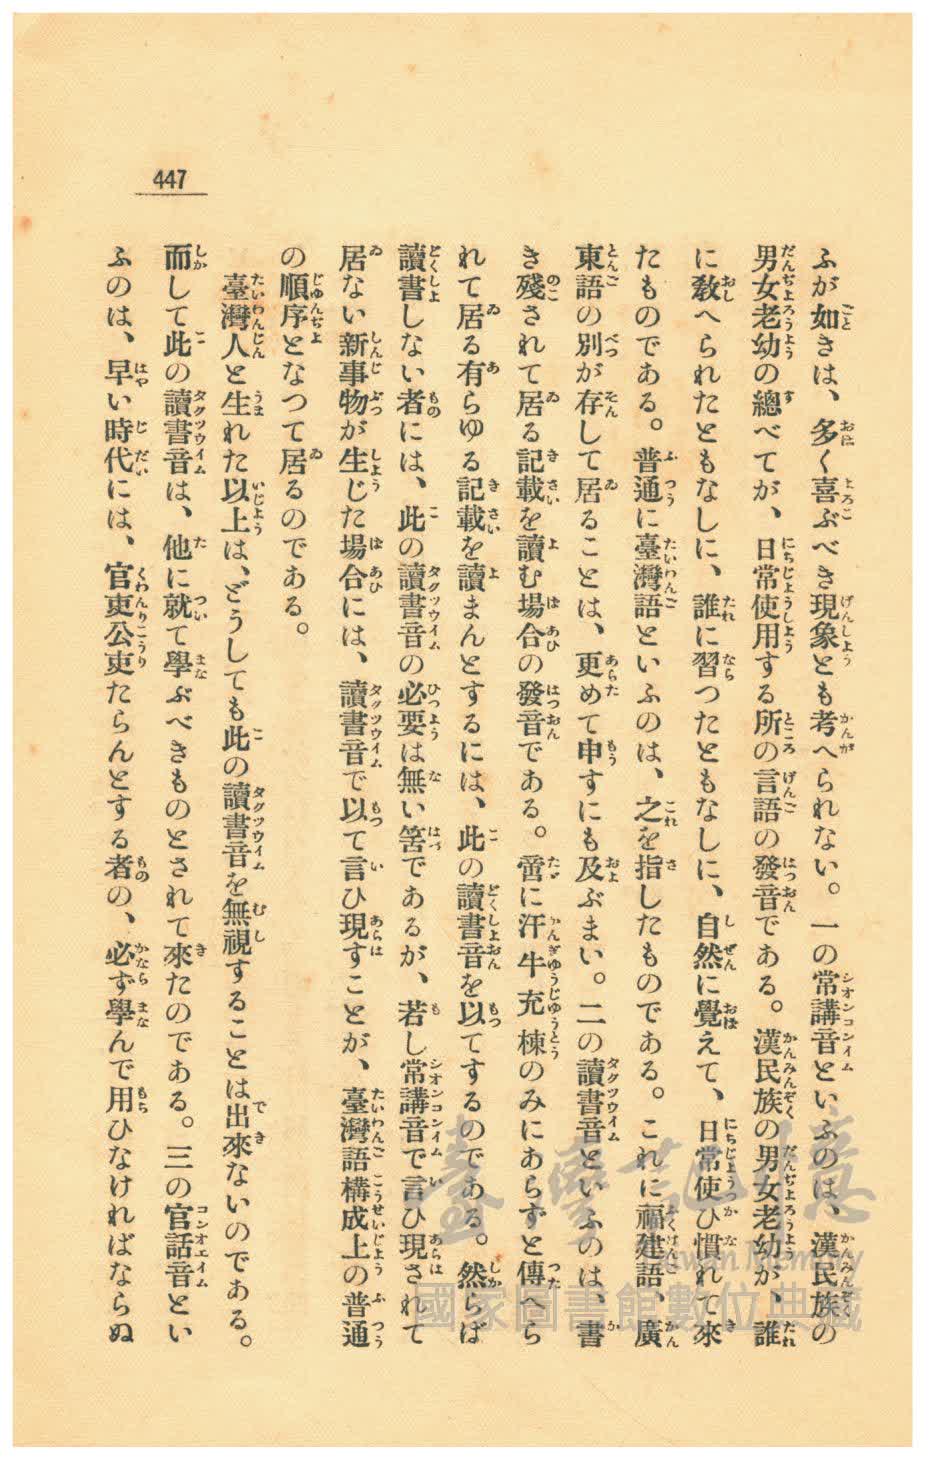 447
ふが如きは、多く喜ぶべき現象とも考へられない。一の常講音といふのは、漢民族の
男女老幼の總べてが、日常使用する所の言語の發音である。漢民族の男女老幼が、誰
に敎へられたともなしに、誰に習つたともなしに、自然に覺えて、日常使ひ慣れて來
たものである。普通に臺灣語といふのは、之を指したものである。これに福建語、廣
東語の別が存して居ることは、更めて申すにも及ぶまい。二の讀書音といふのは、書
き殘されて居る記載を讀む場合の發音である。啻に汗牛充棟のみにあらずと傳へら
れて居る有らゆる記載を讀まんとするには、此の讀書音を以てするのである。然らば
讀書しない者には、此の讀書音の必要は無い筈であるが、若し常講音で言ひ現されて
居ない新事物が生じた場合には、讀書音で以て言ひ現すことが、臺灣語構成上の普通
の順序となつて居るのである。
臺灣人と生れた以上は、どうしても此の讀書音を無視することは出來ないのである。
而して此の讀書音は、他に就て學ぶべきものとされて來たのである。三の官話音とい
ふのは、早い時代には、官吏公吏たらんとする者の、必ず學んで用ひなければならぬ
臺灣記憶
Taiwan Memory
國家圖書館數位典藏